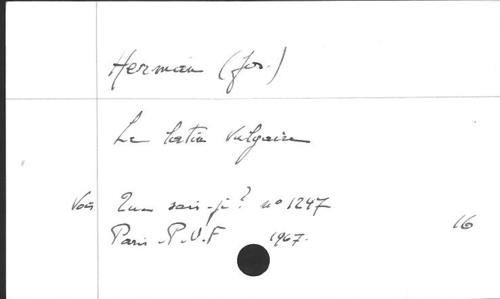 Herman (Jos.)
Le latin vulgaire
Voir Que sais-je? no 1247
Paris. P.U.F 1967.
16